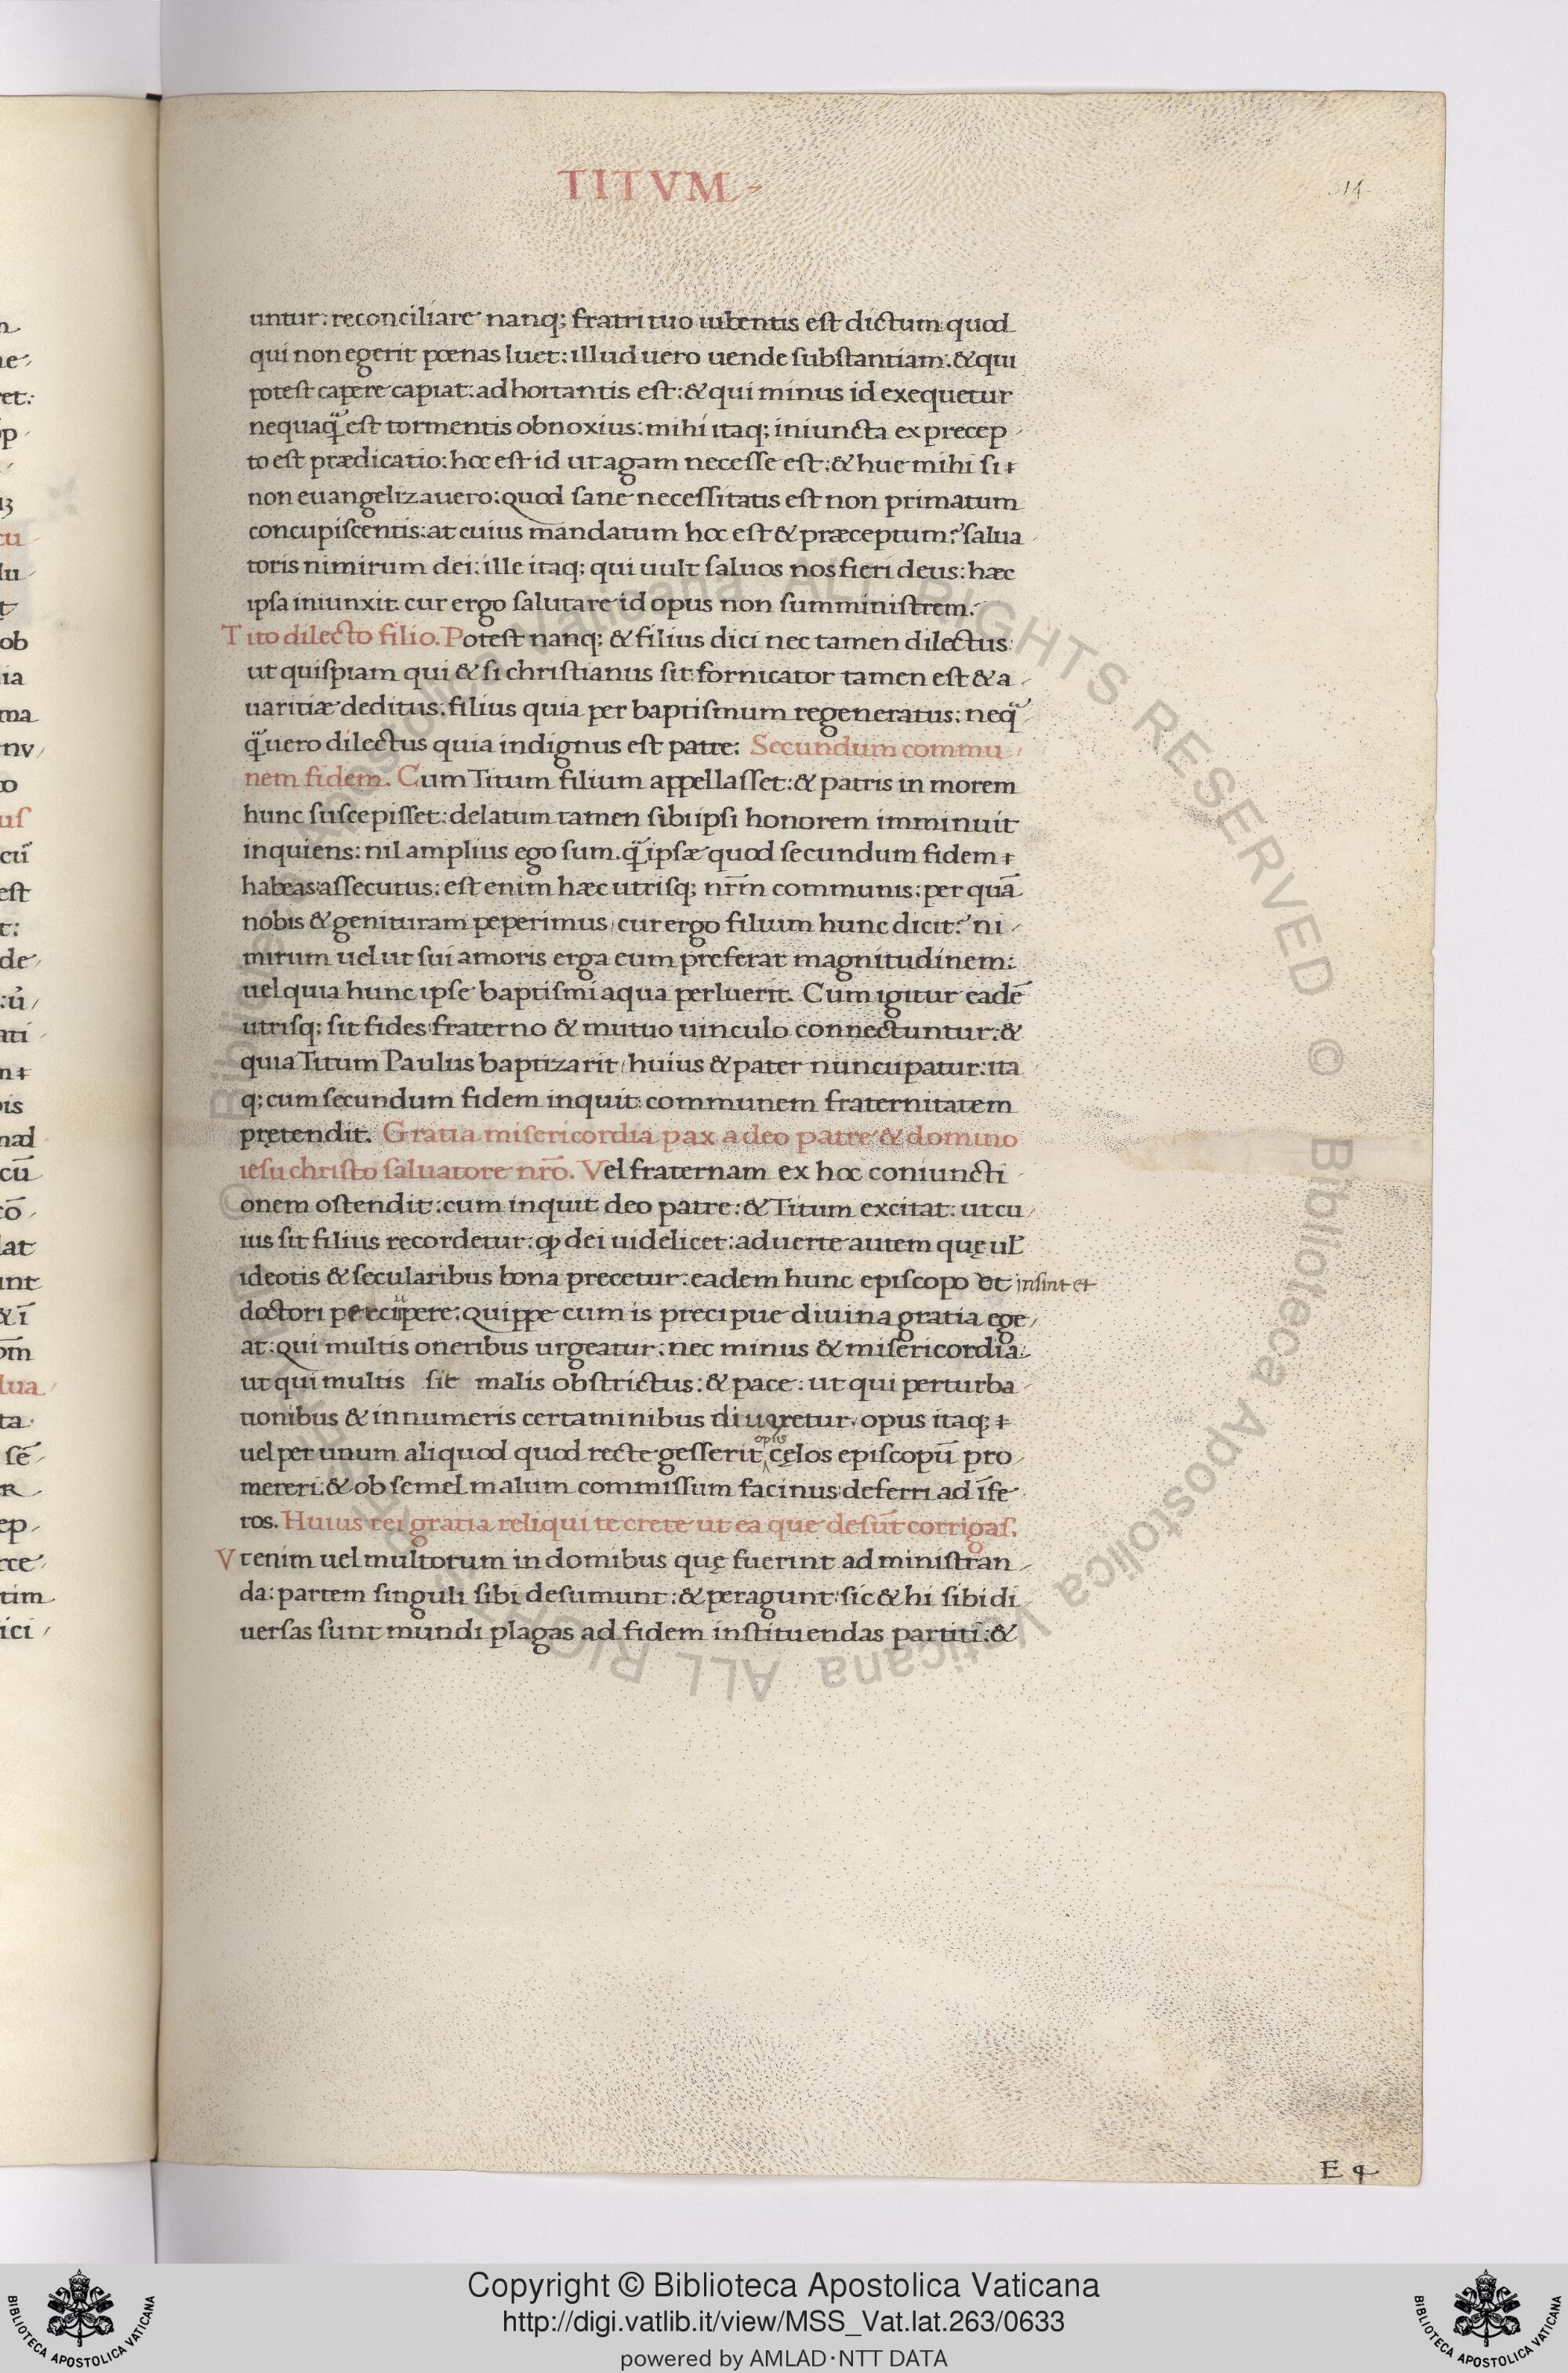 TITVM
314
untur: reconciliare nanq; fratri tuo iubentis est dictum quod
qui non egerit pœnas luet: illud uero uende substantiam: & qui
potest capere capiat: adhortantis est: & qui minus id exequetur
nequaq̃ est tormentis obnoxius: mihi itaq; iniuncta ex precep
to est prædicatio: hoc est id ut agam necesse est: & hue mihi si
non euangelizauero: quod sane necessitatis est non primatum
concupiscentis: at cuius mandatum hoc est & præceptum? salua
toris nimirum dei: ille itaq; qui uult saluos nos fieri deus: hæc
ipsa iniunxit. cur ergo salutare id opus non sumministrem.
Tito dilecto filio. Potest nanq; & filius dici nec tamen dilectus
ut quispiam qui & si christianus sit fornicator tamen est & a
uaritiæ deditus: filius quia per baptismum regeneratus: neq̃
q̃ uero dilectus quia indignus est patre: Secundum commu
nem fidem. Cum Titum filium appellasset: & patris in morem
hunc suscepisset: delatum tamen sibi ipsi honorem imminuit
inquiens: nil amplius ego sum. q̃ ipsæ quod secundum fidem
habeas assecutus: est enim hæc utrisq; nr̃m communis: per quã
nobis & genituram peperimus, cur ergo filium hunc dicit? ni
mirum uel ut sui amoris erga eum preferat magnitudinem:
uel quia hunc ipse baptismi aqua perluerit. Cum igitur eadẽ
utrisq; sit fides fraterno & mutuo uinculo connectuntur: &
quia Titum Paulus baptizarit, huius & pater nuncupatur: ita
q; cum secundum fidem inquit communem fraternitatem
pretendit. Gratia misericordia pax a deo patre & domino
iesu christo saluatore nr̃o. Vel fraternam ex hoc coniuncti
onem ostendit: cum inquit deo patre: & Titum excitat: ut cu
ius sit filius recordetur: ꝙ dei uidelicet: aduerte autem quę ul̃
ideotis & secularibus bona precetur: eadem hunc episcopo et insint et
doctori precipere: quippe cum is precipue diuina gratia ege
at: qui multis oneribus urgeatur: nec minus & misericordia:
ut qui multis sit malis obstrictus: & pace: ut qui perturba
tionibus & innumeris certaminibus diuaretur, opus itaq;
opus
uel per unum aliquod quod recte gesserit cęlos episcopũ pro
mereri: & ob semel malum commissum facinus deferri ad ĩfe
ros. Huius rei gratia reliqui te crete ut ea que desũt corrigas.
Vtenim uel multorum in domibus quę fuerint administran
da: partem singuli sibi desumunt: & peragunt: sic & hi sibi di
uersas sunt mundi plagas ad fidem instituendas partiti: &
Copyright © Biblioteca Apostolica Vaticana
http://digi.vatlib.it/view/MSS_Vat.lat.263/0633
powered by AMLAD·NTT DATA